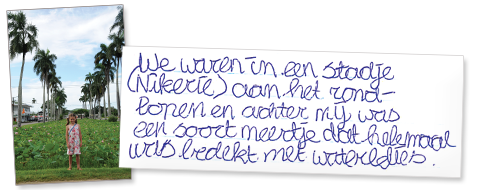 We waren in een stadje
(Nikerie) aan het rond-
lopen en achter mij was
een soort meertje dat helemaal
was bedekt met waterlelies.